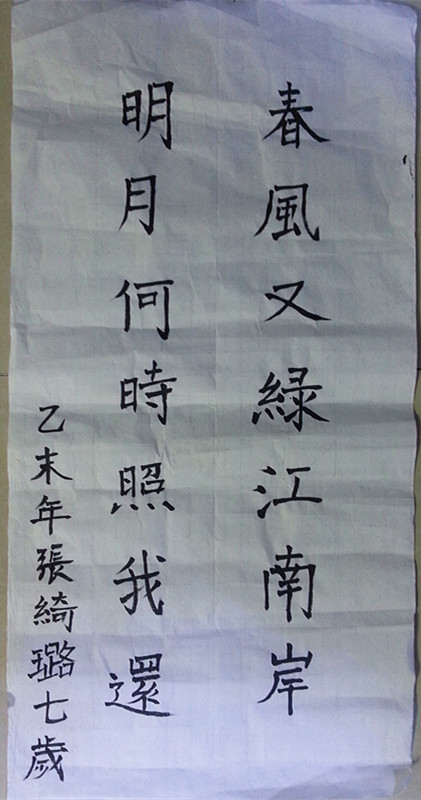 春風又緑江南岸
明月何時照我還
乙末年張綺璐七歲